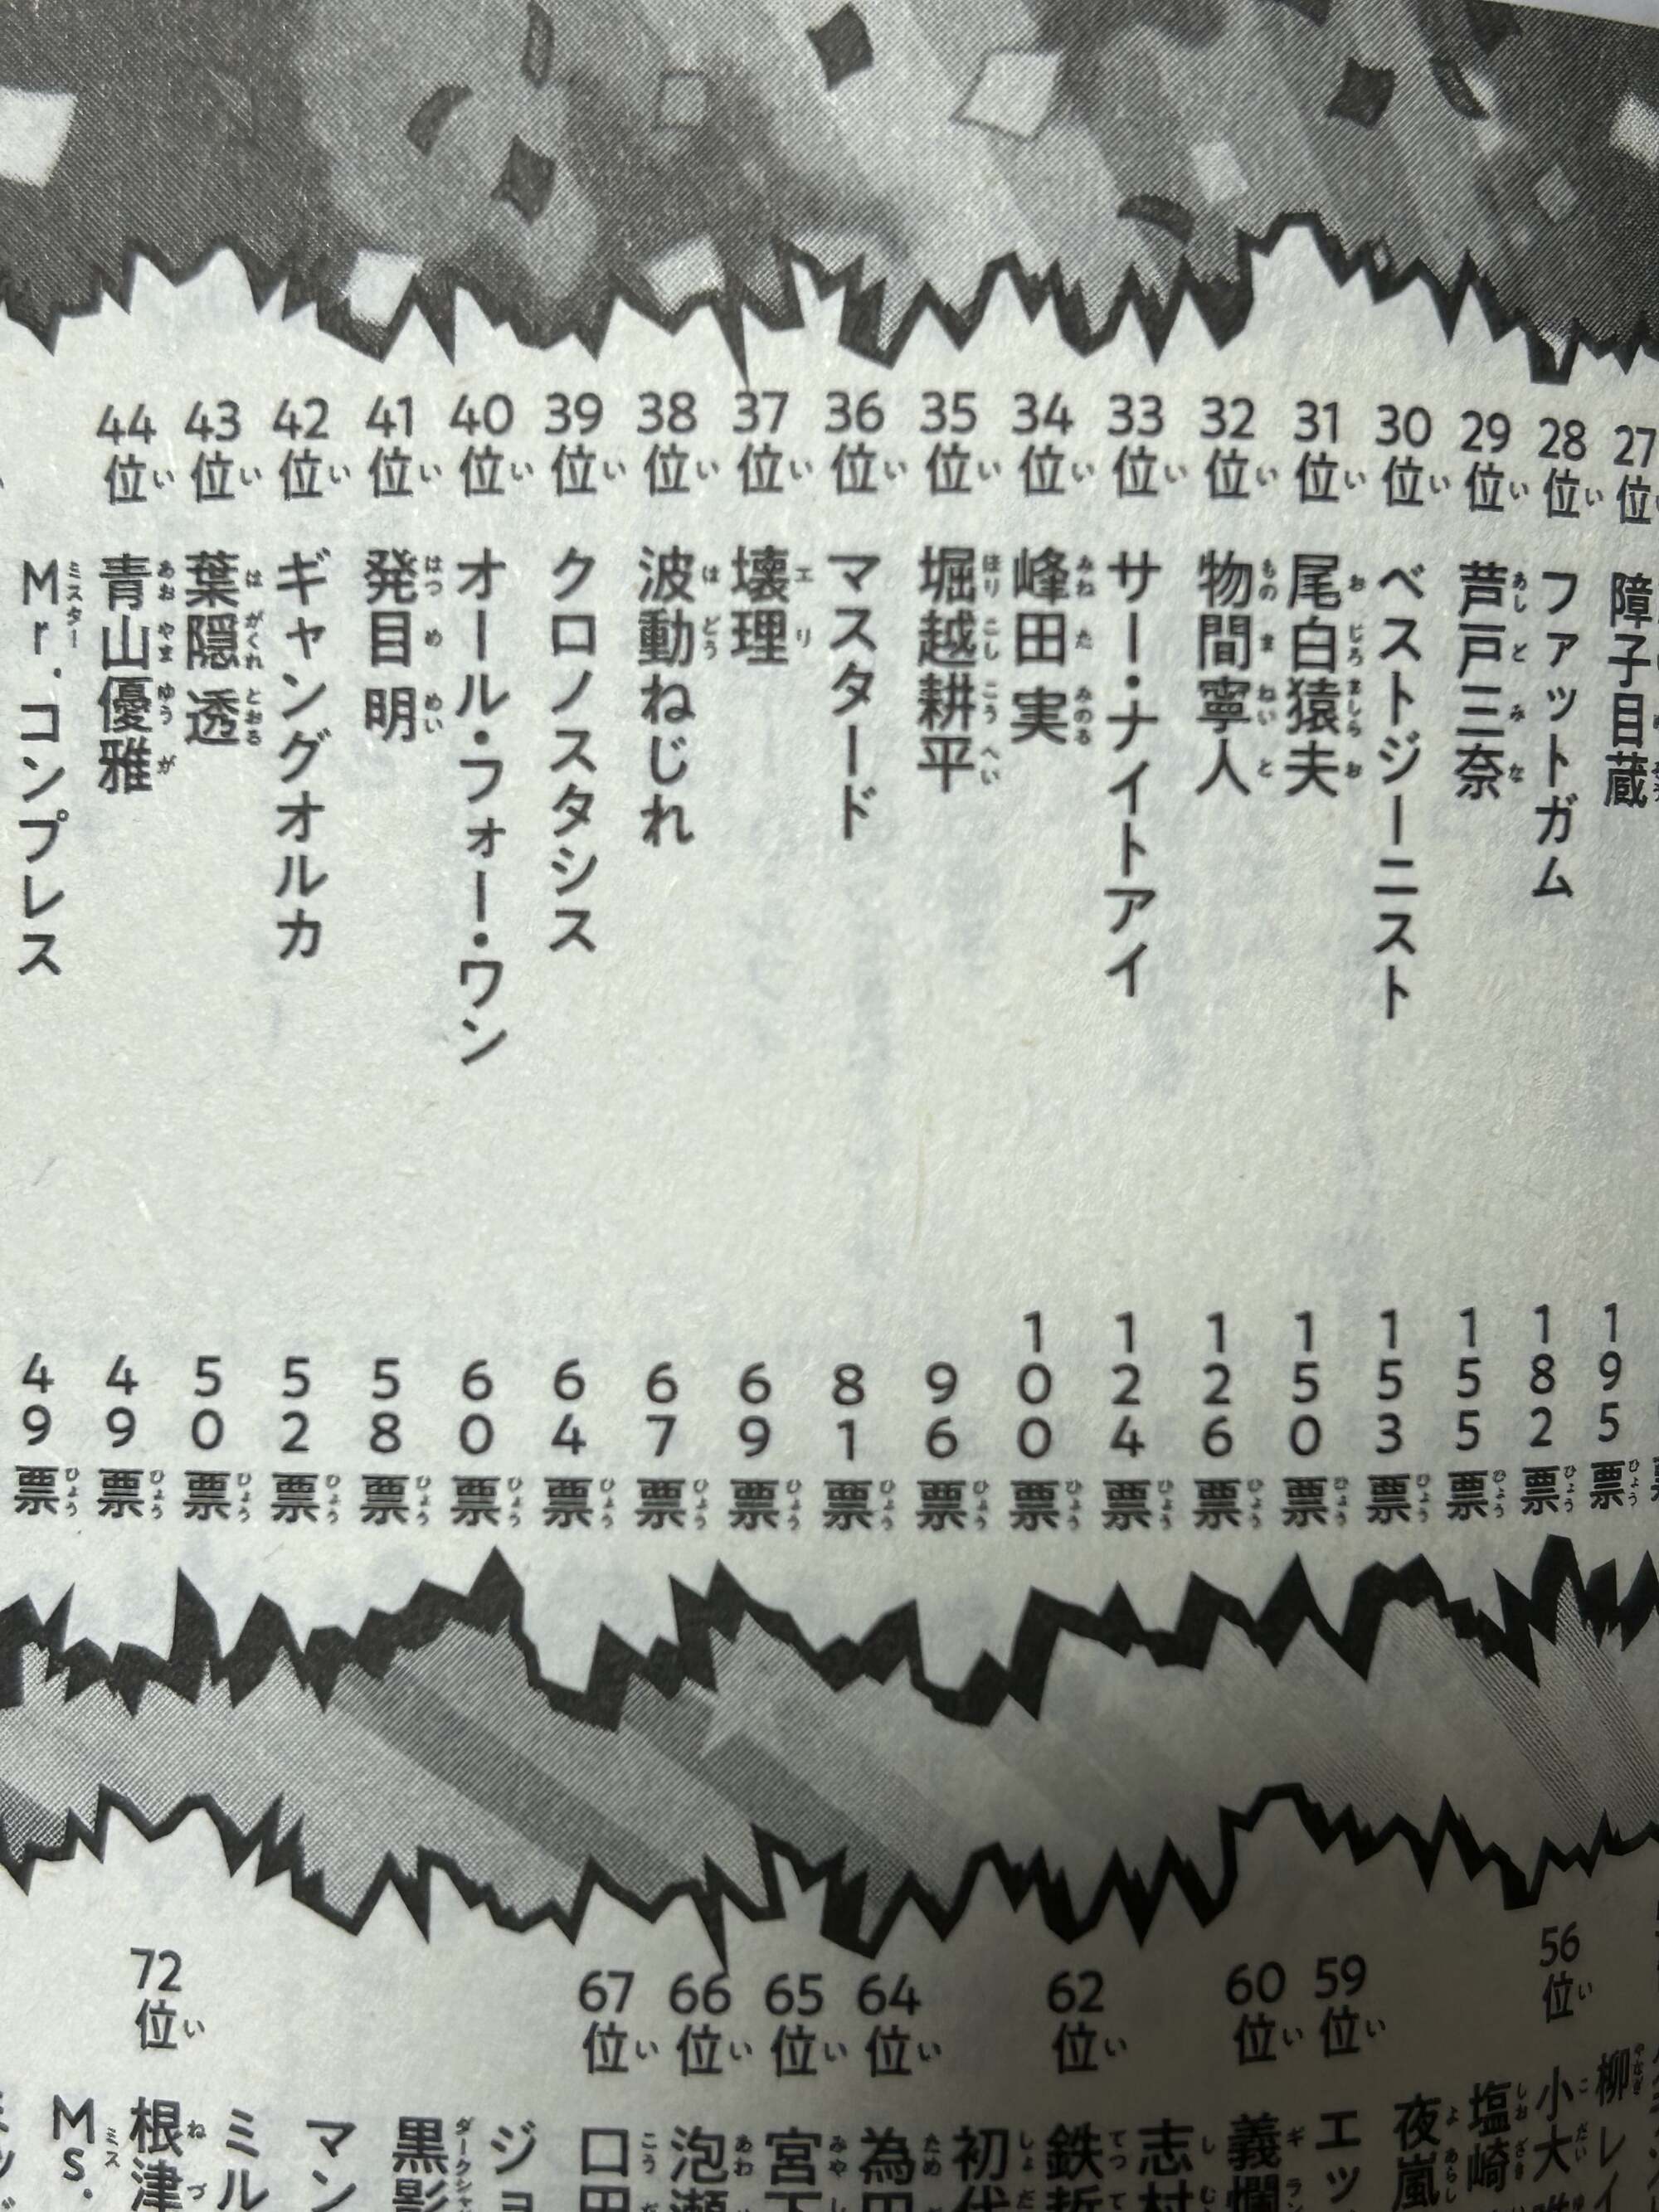 27位 障子目蔵 195票
28位 ファットガム 182票
29位 芦戸三奈 155票
30位 ベストジーニスト 153票
31位 尾白猿夫 150票
32位 物間寧人 126票
33位 サー・ナイトアイ 124票
34位 峰田実 100票
35位 堀越耕平 96票
36位 マスタード 81票
37位 壊理 69票
38位 波動ねじれ 67票
39位 クロノスタシス 64票
40位 オール・フォー・ワン 60票
41位 発目明 58票
42位 ギャングオルカ 52票
43位 葉隠透 50票
44位 青山優雅 49票
Mr.コンプレス 49票
柳レイ
56位 小大
塩崎
夜嵐
59位 エッ
60位 義爛
志村
62位 鉄哲
初代
64位 為田
65位 宮下
66位 泡瀬
67位 口田
ジョ
黒影
マン
ミル
72位 根津
Ms.